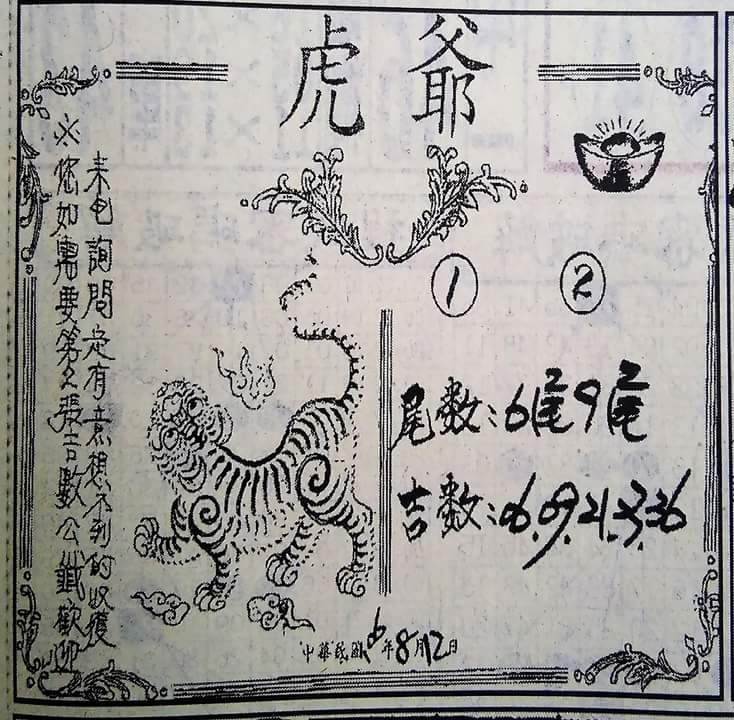 虎爺
① ②
尾数:6尾9尾
吉数:06.09.21.33.36
※您如需要第2張吉數公籤歡迎
来电詢問定有意想不到的收獲
中華民國 年8月12日